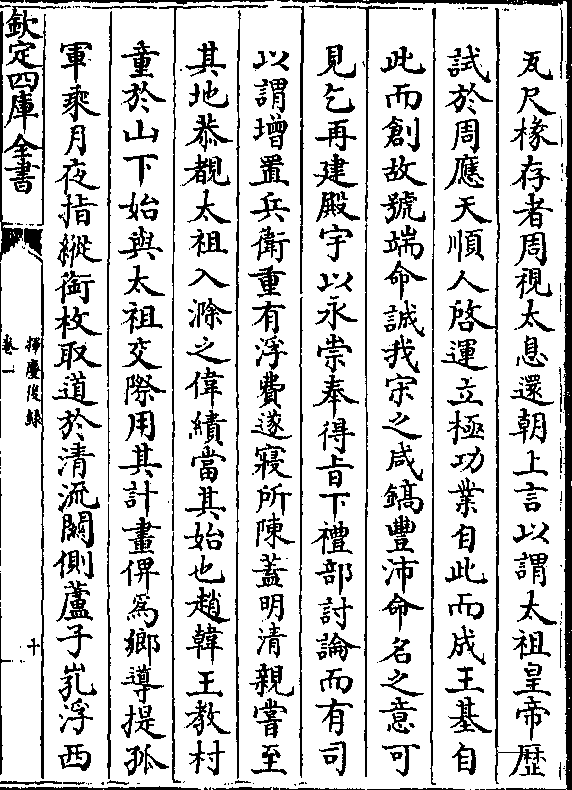 瓦尺椽存者周視太息還朝上言以謂太祖皇帝歴
試於周應天順人啓運立極功業自此而成王基自
此而創故號端命誠我宋之咸鎬豐沛命名之意可
見乞再建殿宇以永崇奉得旨下禮部討論而有司
以謂增置兵衛重有浮費遂寢所陳蓋明清親嘗至
其地恭覩太祖入滁之偉績當其始也趙韓王教村
童於山下始與太祖交際用其計畫俾爲鄉導提孤
軍乘月夜指縱銜枚取道於清流闗側蘆子㟁浮西
欽定四庫全書
揮麈後録
卷一
十